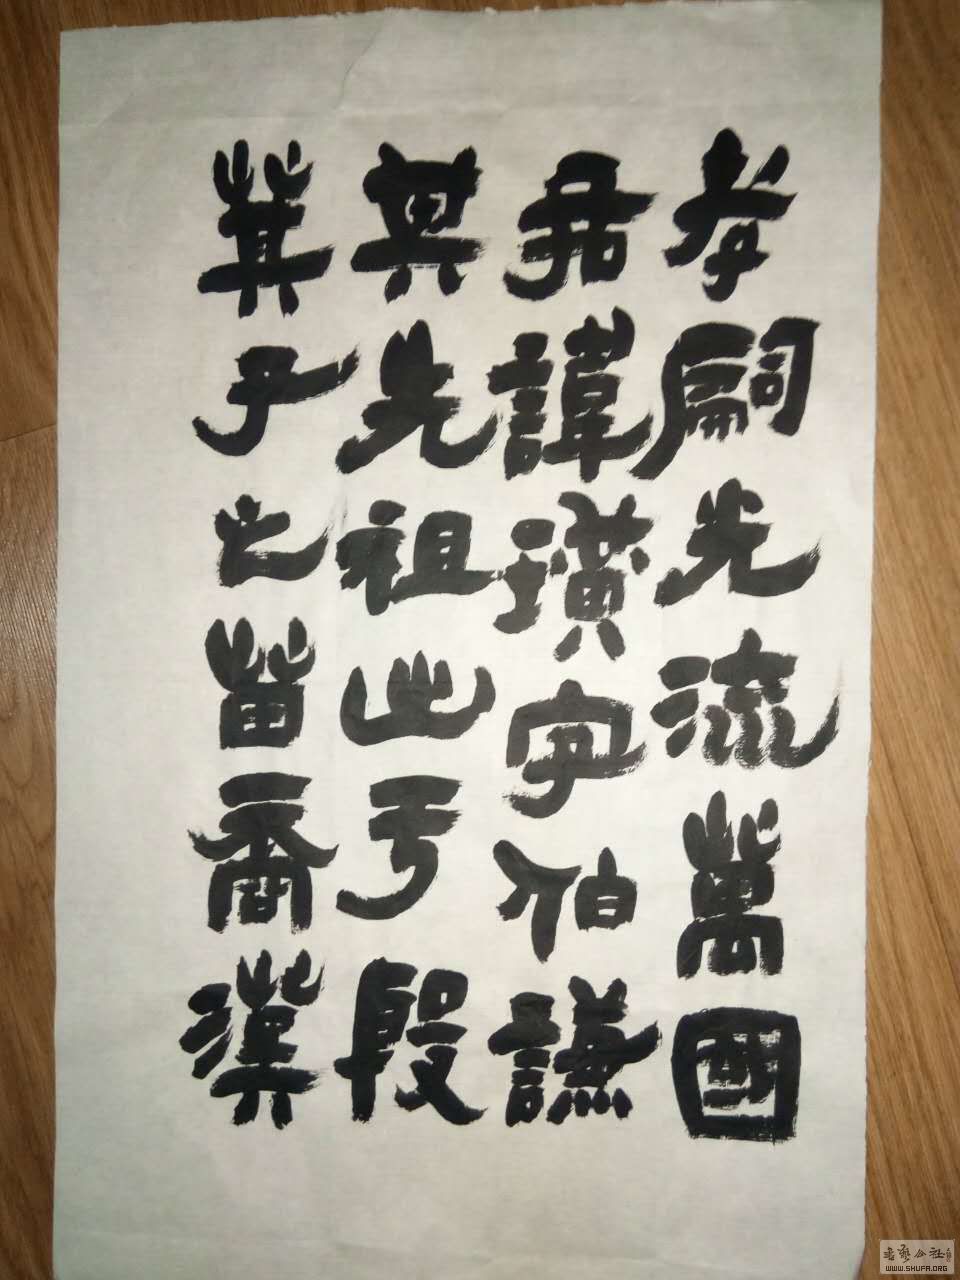 孝嗣光流萬國
君諱璜字伯謙
其先祖出于殷
箕子之苗裔漢
書藝公社
WWW.SHUFA.ORG